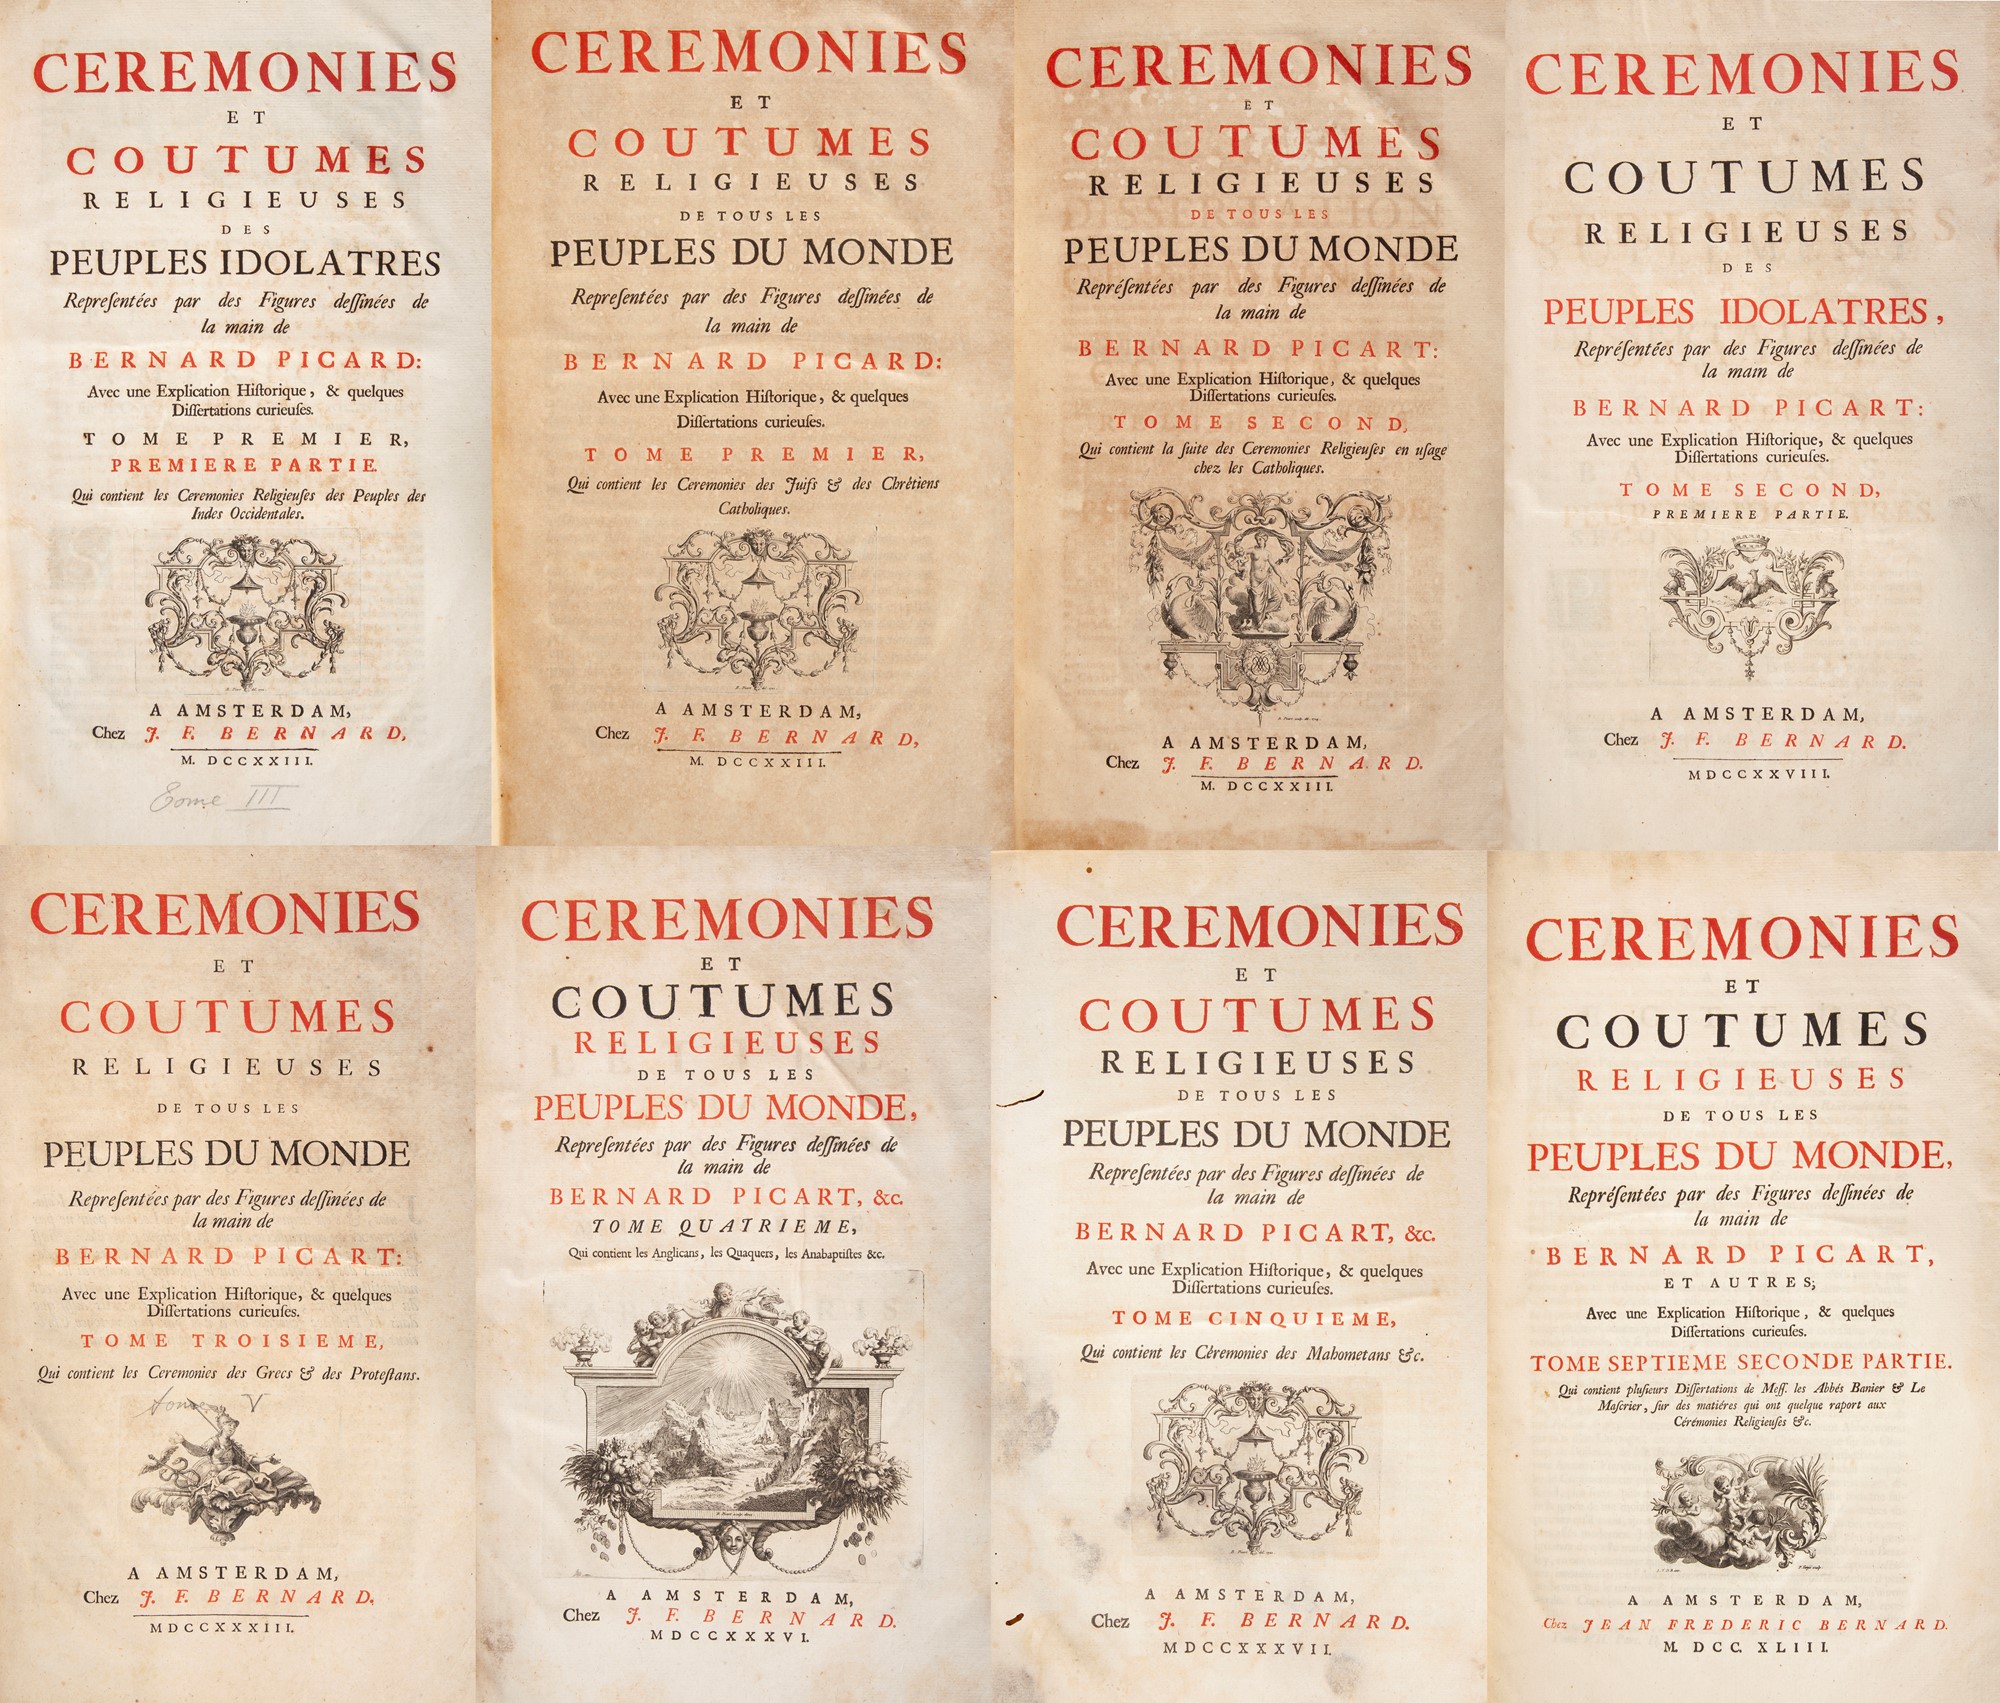 CEREMONIES
ET
COUTUMES
RELIGIEUSES
DES
PEUPLES IDOLATRES
Repreſentées par des Figures deſſinées de
la main de
BERNARD PICARD:
Avec une Explication Hiſtorique, & quelques
Diſſertations curieuſes.
TOME PREMIER,
PREMIERE PARTIE.
Qui contient les Ceremonies Religieuſes des Peuples des
Indes Occidentales.
A AMSTERDAM,
Chez J. F. BERNARD,
M. DCCXXIII.
Tome III
CEREMONIES
ET
COUTUMES
RELIGIEUSES
DE TOUS LES
PEUPLES DU MONDE
Repreſentées par des Figures deſſinées de
la main de
BERNARD PICARD:
Avec une Explication Hiſtorique, & quelques
Diſſertations curieuſes.
TOME PREMIER,
Qui contient les Ceremonies des Juifs & des Chrêtiens
Catholiques.
A AMSTERDAM,
Chez J. F. BERNARD,
M. DCCXXIII.
CEREMONIES
ET
COUTUMES
RELIGIEUSES
DE TOUS LES
PEUPLES DU MONDE
Repréſentées par des Figures deſſinées de
la main de
BERNARD PICART:
Avec une Explication Hiſtorique, & quelques
Diſſertations curieuſes.
TOME SECOND,
Qui contient la ſuite des Ceremonies Religieuſes en uſage
chez les Catholiques.
A AMSTERDAM,
Chez J. F. BERNARD.
M. DCCXXIII.
CEREMONIES
ET
COUTUMES
RELIGIEUSES
DES
PEUPLES IDOLATRES,
Repréſentées par des Figures deſſinées de
la main de
BERNARD PICART:
Avec une Explication Hiſtorique, & quelques
Diſſertations curieuſes.
TOME SECOND,
PREMIERE PARTIE.
A AMSTERDAM,
Chez J. F. BERNARD.
MDCCXXVIII.
CEREMONIES
ET
COUTUMES
RELIGIEUSES
DE TOUS LES
PEUPLES DU MONDE
Repreſentées par des Figures deſſinées de
la main de
BERNARD PICART:
Avec une Explication Hiſtorique, & quelques
Diſſertations curieuſes.
TOME TROISIEME,
Qui contient les Ceremonies des Grecs & des Proteſtans.
tome V
A AMSTERDAM,
Chez J. F. BERNARD.
MDCCXXXIII.
CEREMONIES
ET
COUTUMES
RELIGIEUSES
DE TOUS LES
PEUPLES DU MONDE,
Repreſentées par des Figures deſſinées de
la main de
BERNARD PICART, &c.
TOME QUATRIEME,
Qui contient les Anglicans, les Quaquers, les Anabaptiſtes &c.
A AMSTERDAM,
Chez J. F. BERNARD.
MDCCXXXVI.
CEREMONIES
ET
COUTUMES
RELIGIEUSES
DE TOUS LES
PEUPLES DU MONDE
Repreſentées par des Figures deſſinées de
la main de
BERNARD PICART, &c.
Avec une Explication Hiſtorique, & quelques
Diſſertations curieuſes.
TOME CINQUIEME,
Qui contient les Cêremonies des Mahometans &c.
A AMSTERDAM,
Chez J. F. BERNARD.
MDCCXXXVII.
CEREMONIES
ET
COUTUMES
RELIGIEUSES
DE TOUS LES
PEUPLES DU MONDE,
Repréſentées par des Figures deſſinées de
la main de
BERNARD PICART,
ET AUTRES;
Avec une Explication Hiſtorique, & quelques
Diſſertations curieuſes.
TOME SEPTIEME SECONDE PARTIE.
Qui contient pluſieurs Diſſertations de Meſſ. les Abbés Banier & Le
Maſcrier, ſur des matiéres qui ont quelque raport aux
Cérémonies Religieuſes &c.
A AMSTERDAM,
Chez JEAN FREDERIC BERNARD.
M. DCC. XLIII.